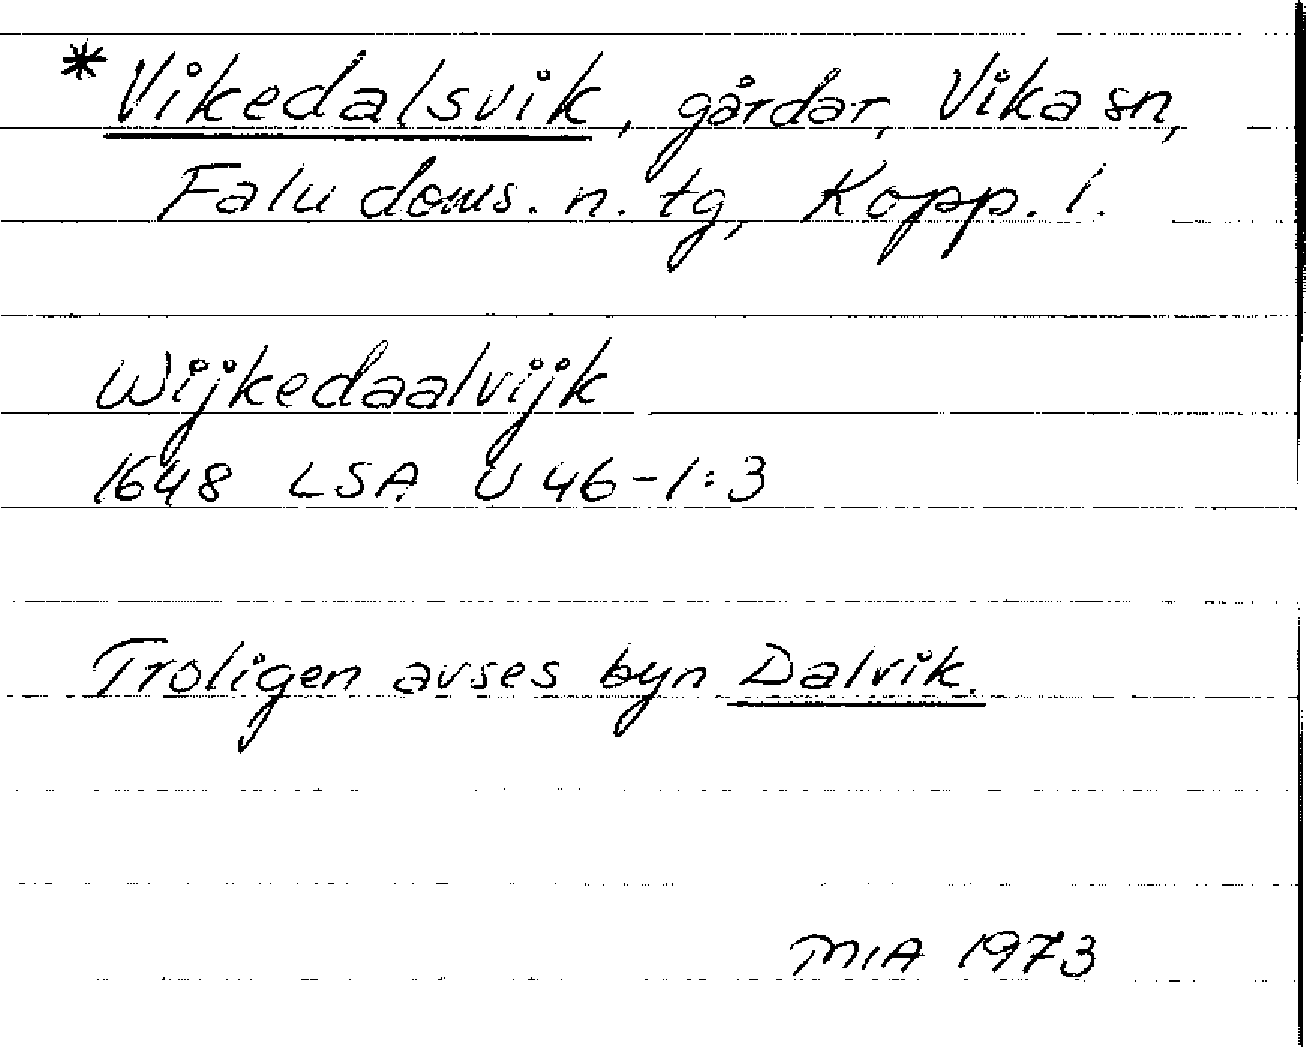 * Vikedalsvik, gårdar, Vika sn,
Falu doms. n. tg, Kopp. l.
Wijkedaalvijk
1648 LSA U 46-1:3
Troligen avses byn Dalvik.
MIA 1973